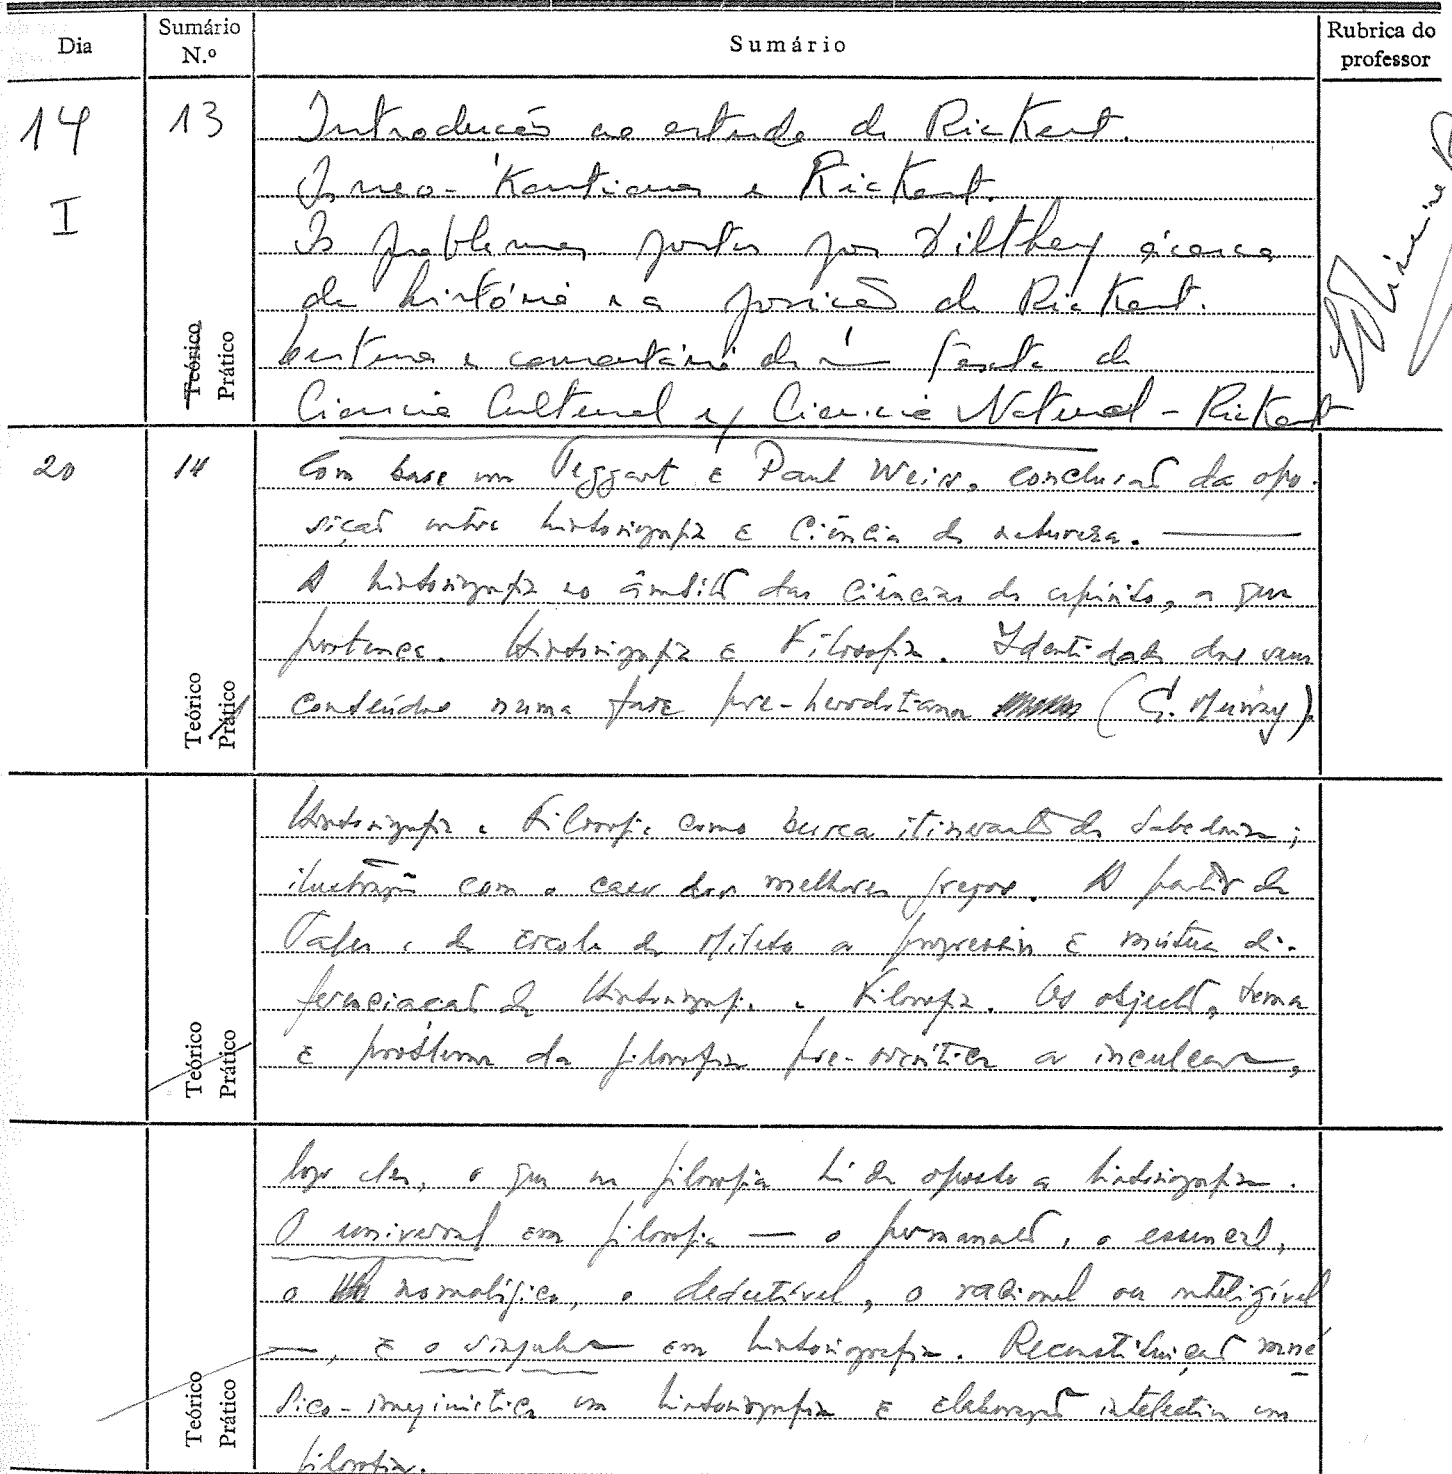 Dia
Sumário N.º
Sumário
Rubrica do professor
14
I
13
Teórico
Prático
Introdução ao estudo de Rickert.
Os neo-Kantianos e Rickert.
Os problemas postos por Dilthey acerca
da história e a posição de Rickert.
Leitura e comentário de um texto de
Ciencia Cultural y Ciencia Natural - Rickert
20
14
Teórico
Prático
Com base em Teggart e Paul Weiss, conclusão da opo-
sição entre historiografia e Ciência da natureza. —
A historiografia no âmbito das Ciências do espírito, a que
pertence. Historiografia e Filosofia. Identidade dos seus
conteúdos numa fase pre-herodotiana (G. Murray).
Teórico
Prático
Historiografia e Filosofia como busca itinerante da Sabedoria;
ilustração com o caso dos melhores gregos. A partir de
Tales e da escola de Mileto a progressiva e mútua di-
ferenciação de Historiografia e Filosofia. Os objecto, tema
e problema da filosofia pre-socrática a inculcarem,
Teórico
Prático
logo eles, o que na filosofia há de oposto a historiografia.
O universal em filosofia — o permanente, o essencial,
o nomológico, o dedutível, o racional ou inteligível
—, e o singular em historiografia. Reconstituição mné
sico-imaginística em historiografia e elaboração intelectiva em
filosofia.